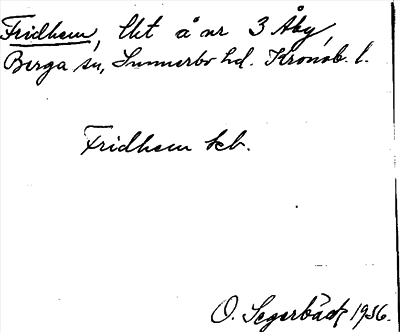 Fridhem, lht å nr 3 Åby,
Berga sn, Sunnerbo hd. Kronob. l.
Fridhem kb.
O. Segerbäck 1956.